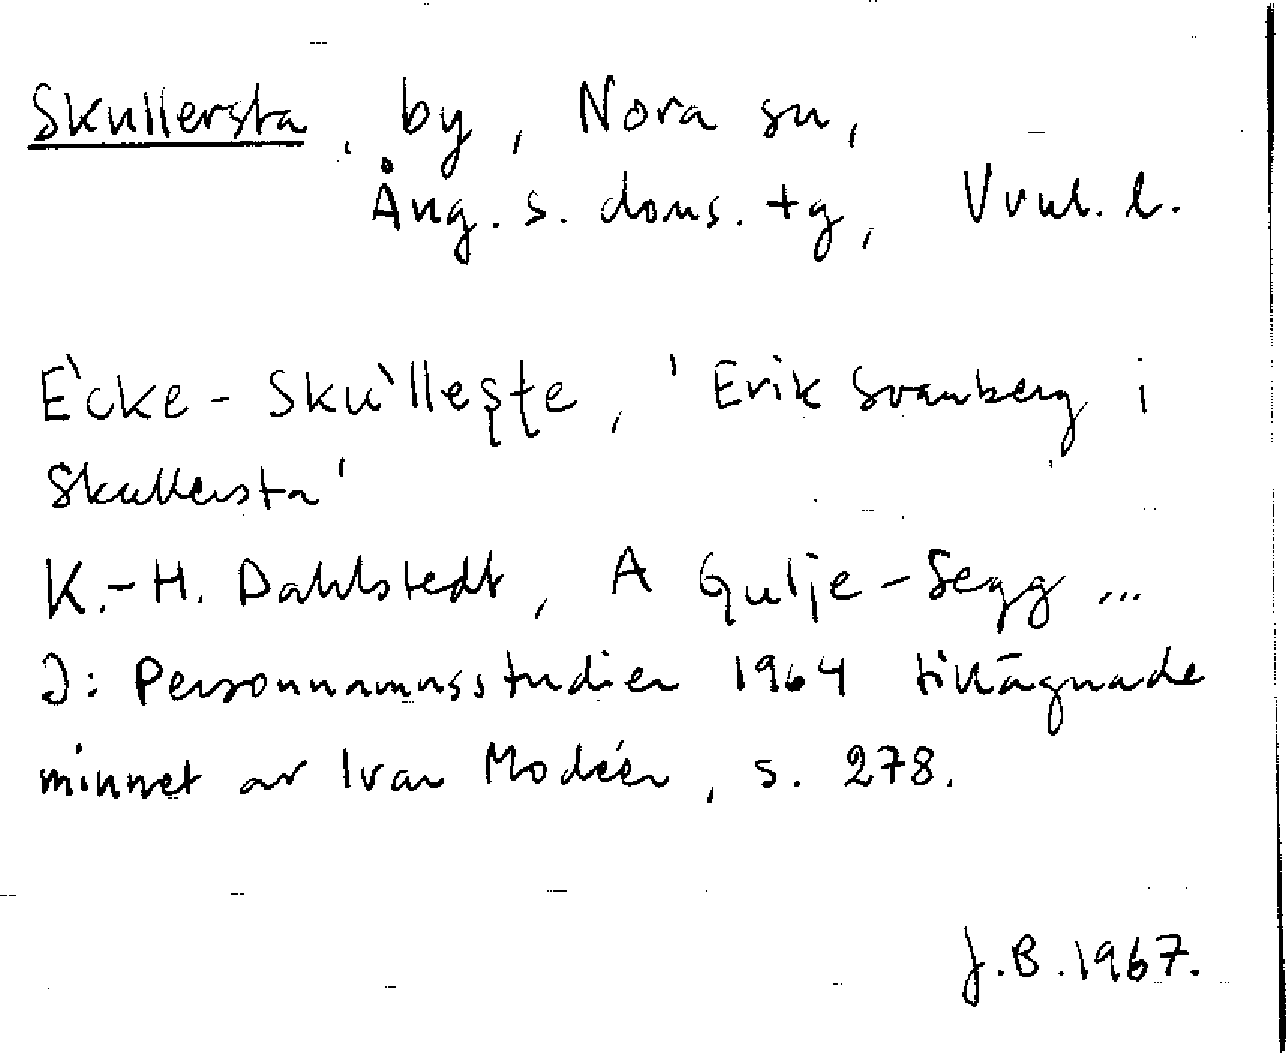 Skullersta, by, Nora sn,
Ång. s. doms. tg, Vvnl. l.
E`cke-Sku`lleşţe, 'Erik Svanberg i
Skullersta'
K.-H. Dahlstedt, A Gulje-Segg ...
I: Personnamnsstudier 1964 tillägnade
minnet av Ivar Modéer, s. 278.
J.B.1967.